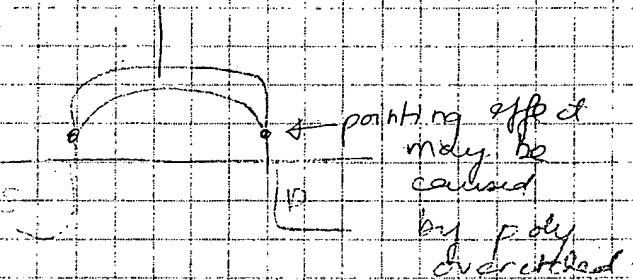 pointing effect
may be
caused
D
by poly
overetched